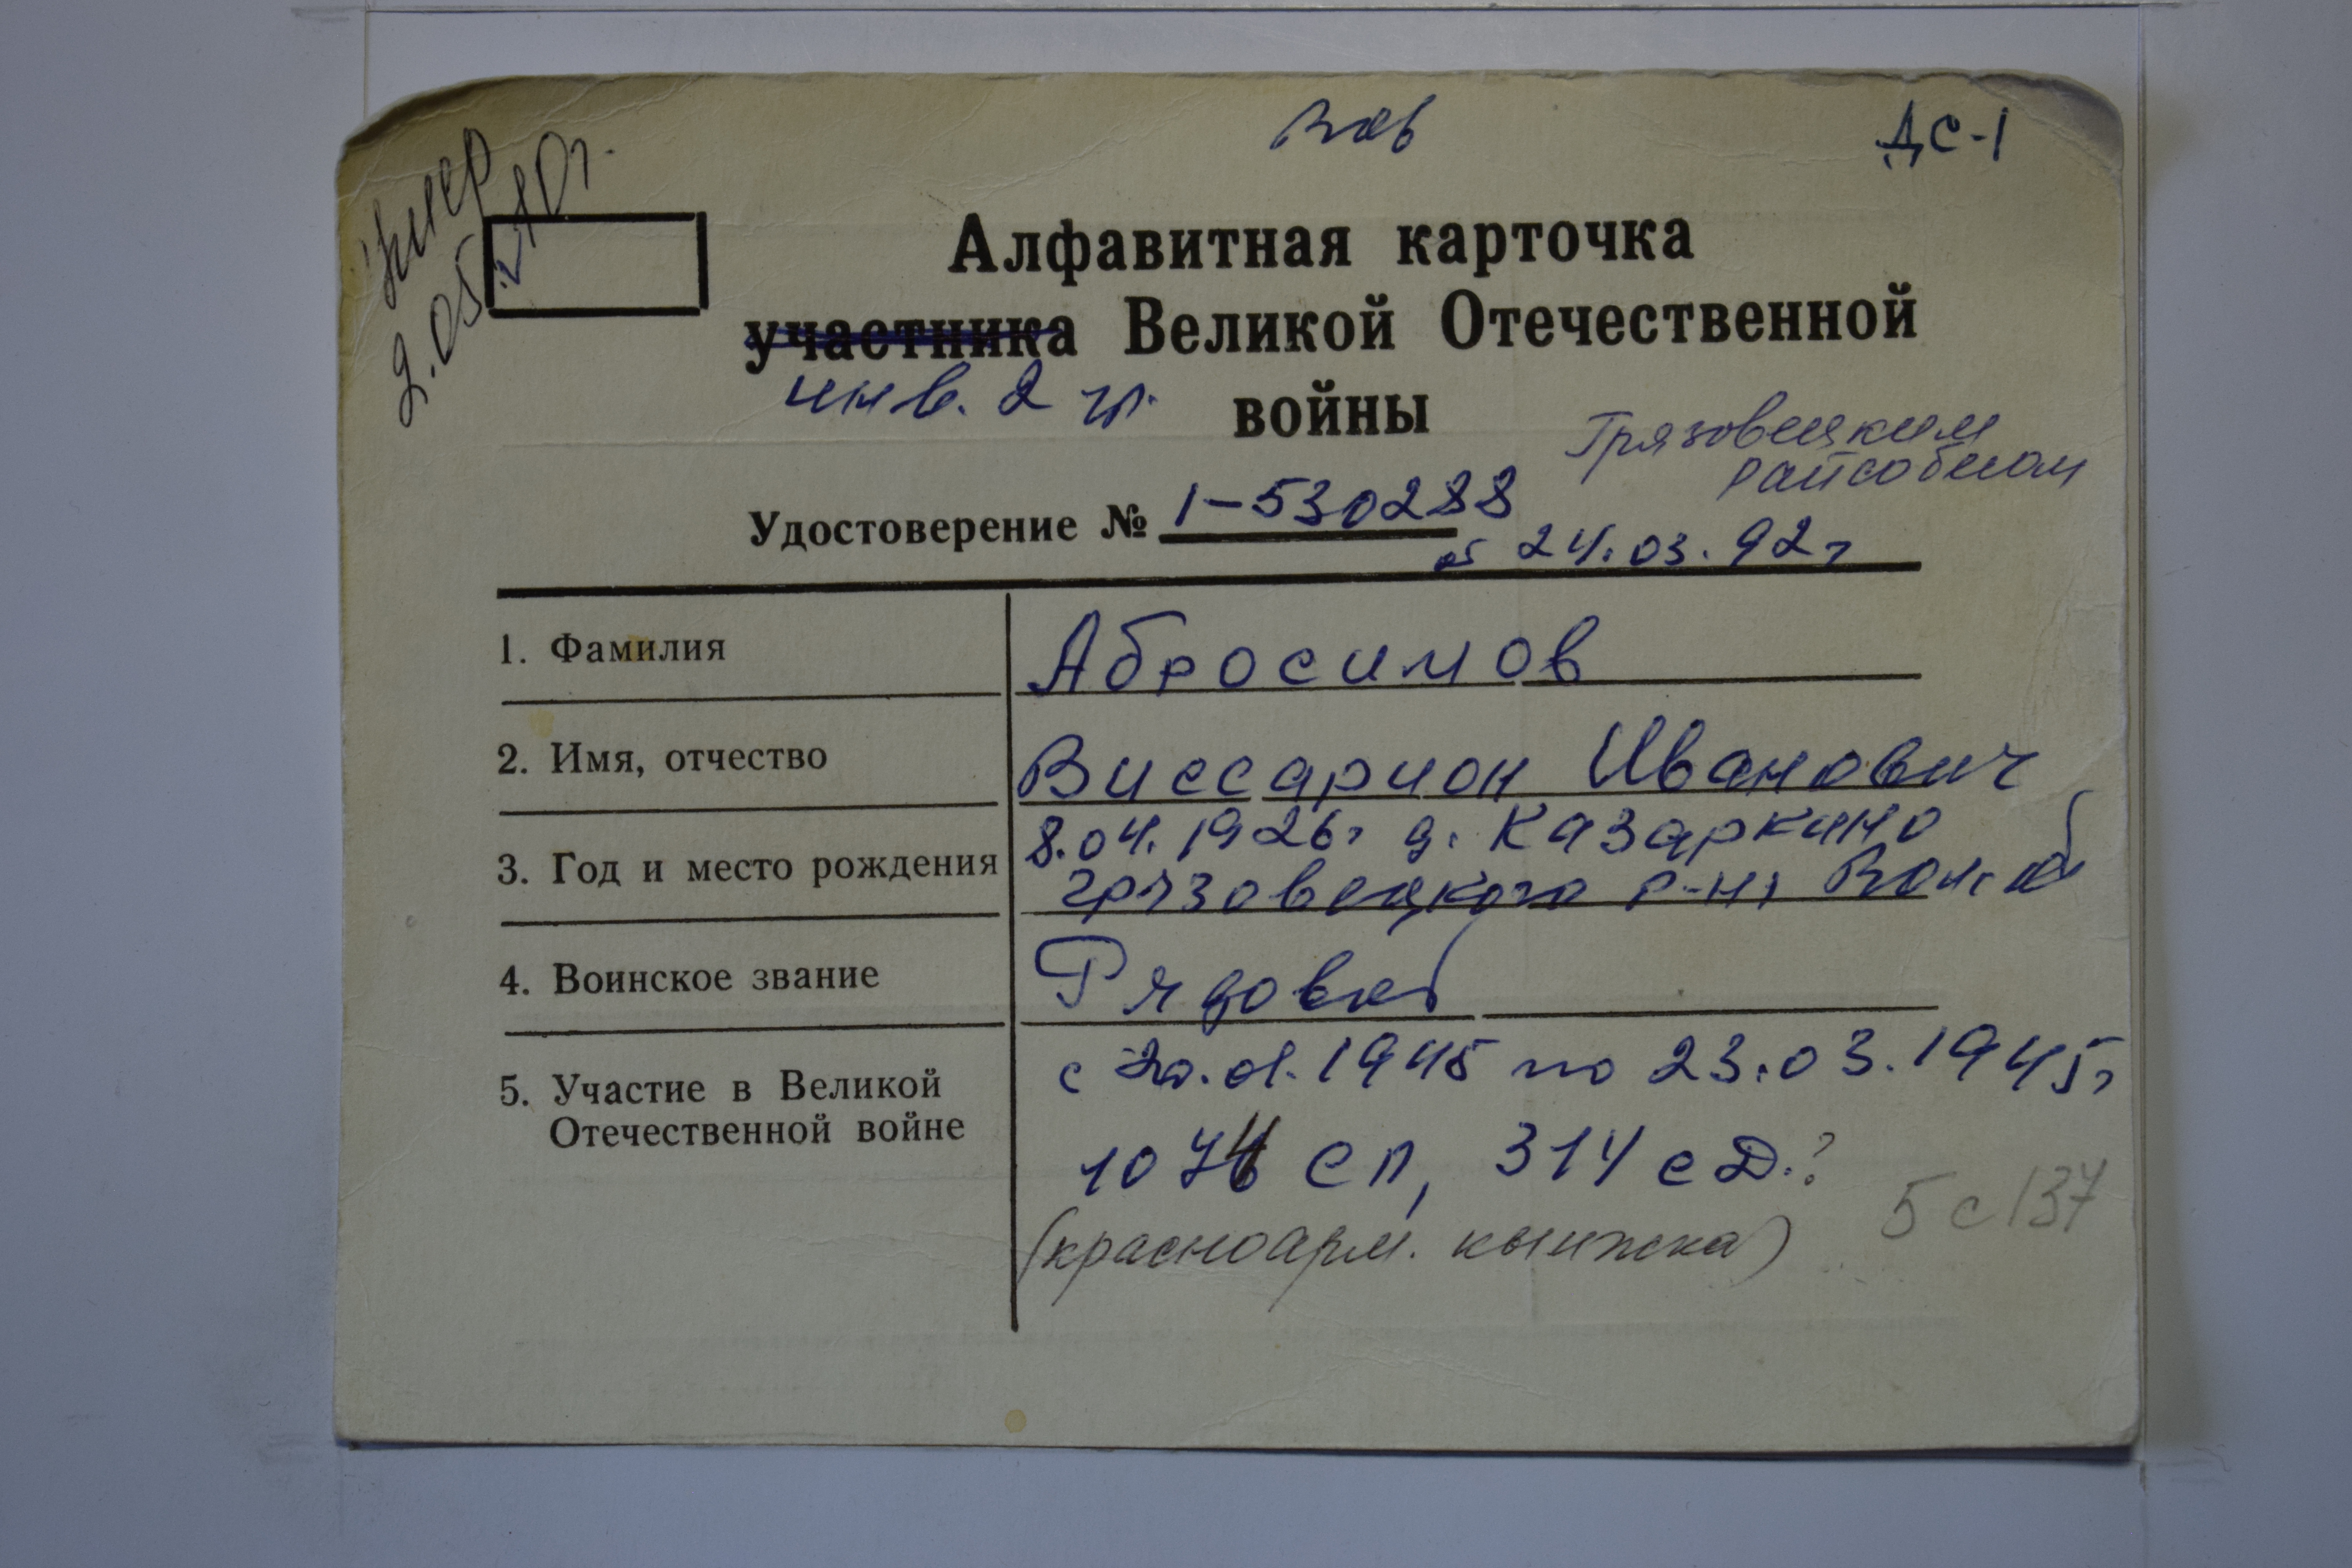 умер
2.05.10г.
ДС-1
Алфавитная карточка
участника Великой Отечественной
инв. 2 гр. войны
Грязовецким
райсобесом
Удостоверение № 1-530288
от 24.03.92г
1. Фамилия Абросимов
2. Имя, отчество Виссарион Иванович
3. Год и место рождения 8.04.1926г д. Казаркино
грязовецкого р-на Вол. об
4. Воинское звание Рядовой
5. Участие в Великой Отечественной войне с 20.01.1945 по 23.03.1945г
1074 СП, 314 СД.?
(красноарм. книжка) 5 с 137